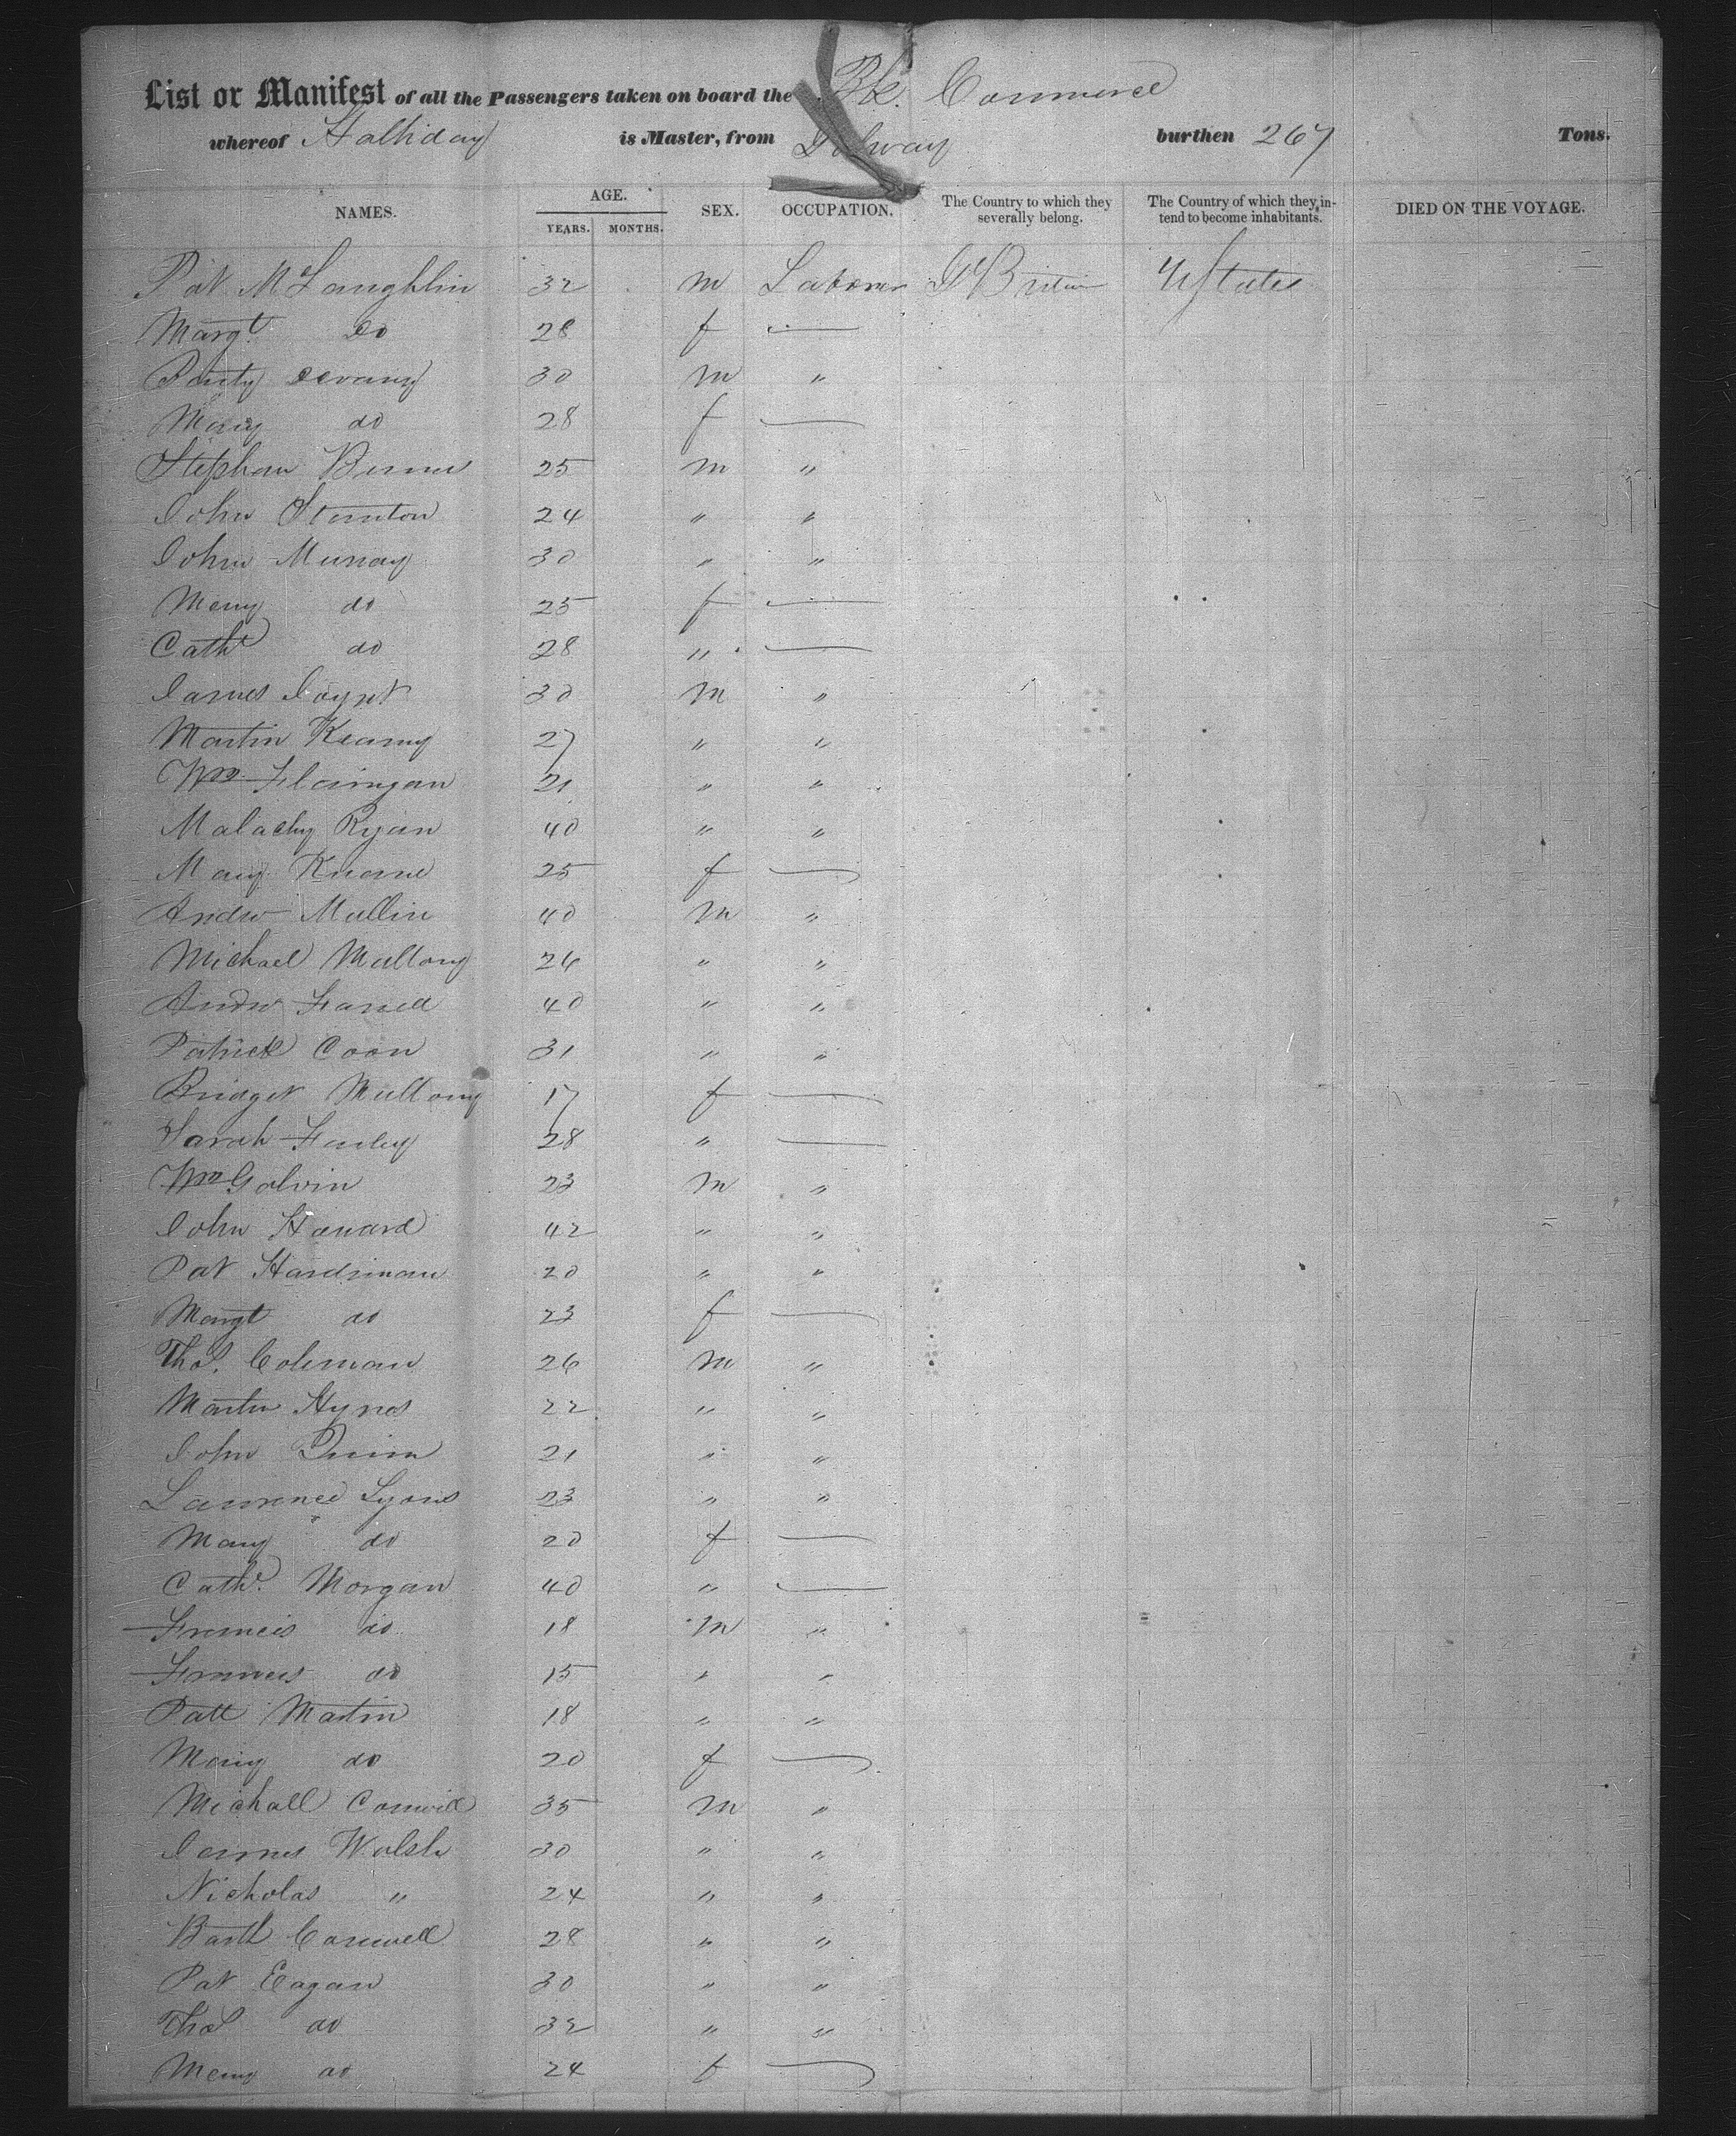 List or Manifest of all the Passengers taken on board the Bk. Commerce
whereof Halliday is Master, from Galway burthen 267 Tons.
NAMES. AGE. YEARS. MONTHS. SEX. OCCUPATION. The Country to which they severally belong. The Country of which they intend to become inhabitants. DIED ON THE VOYAGE.
Pat McLaughlin 32 m Laborer Gt Britain U States
Margt do 28 f —
Patty Devany 30 m "
Mary do 28 f —
Stephen 25 m "
John Stanton 24 " "
John Murray 30 " "
Mary do 25 f —
Cathe do 28 " —
James Joynt 30 m "
Martin Kearny 27 " "
Wm Flanigan 21 " "
Malachy Ryan 40 " "
Mary 25 f —
Andw Mullin 40 m "
Michael Mullony 26 " "
Andw Farrell 40 " "
Patrick Coon 31 " "
Bridget Mullony 17 f —
Sarah Farley 28 " —
Wm Galvin 23 m "
John Haward 42 " "
Pat Hardiman 20 " "
Margt do 23 f —
Thos. Coleman 26 m "
Martin Hynes 22 " "
John Quinn 21 " "
Laurence Lyons 23 " "
Mary do 20 f —
Cathe. Morgan 40 " —
Francis do 18 m "
Frances do 15 " "
Patt Martin 18 " "
Mary do 20 f —
Michall Conwell 35 m "
James Walsh 30 " "
Nicholas " 24 " "
Barth Conwell 28 " "
Pat Eagan 30 " "
Thos do 32 " "
Mary do 24 f —